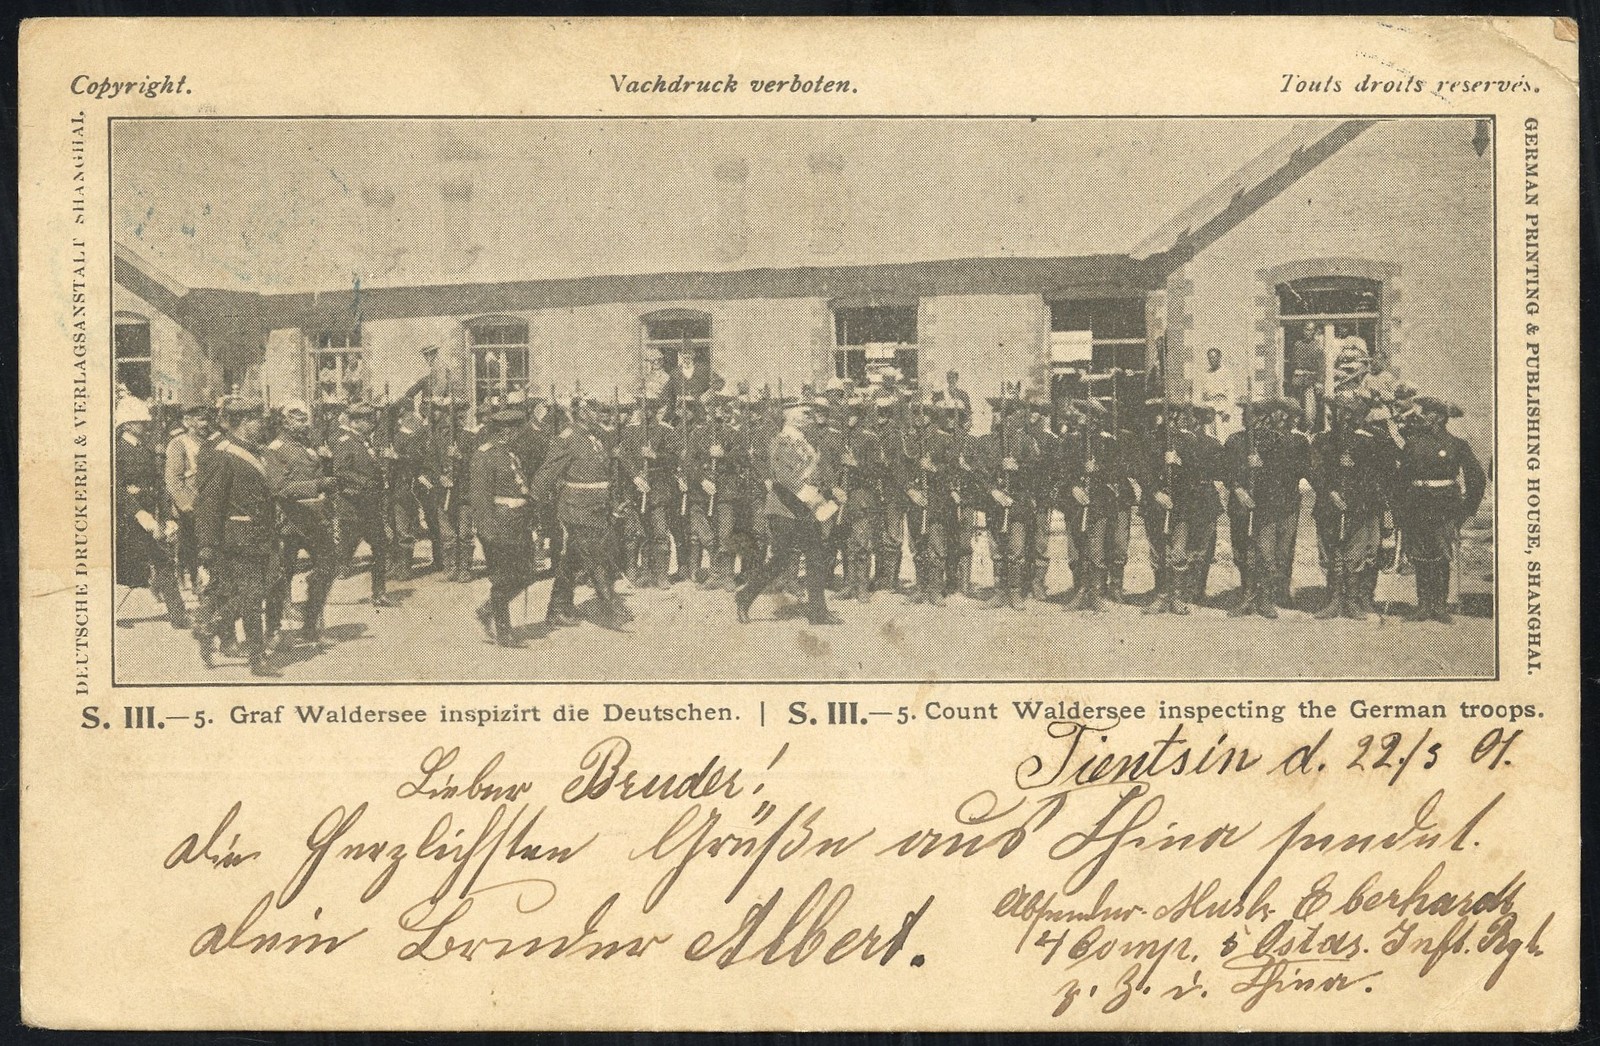 Copyright.
Nachdruck verboten.
Touts droits reservés.
DEUTSCHE DRUCKEREI & VERLAGSANSTALT SHANGHAI.
GERMAN PRINTING & PUBLISHING HOUSE, SHANGHAI.
S. III.—5. Graf Waldersee inspizirt die Deutschen. | S. III.—5. Count Waldersee inspecting the German troops.
Tientsin d. 22./3 01.
Lieber Bruder!
die herzlichsten Grüße aus China sendet.
dein Bruder Albert.
Absender. Musk. Eberhardt
4 Comp. 5 Ostas. Inft. Rgt.
z. Z. i. China.